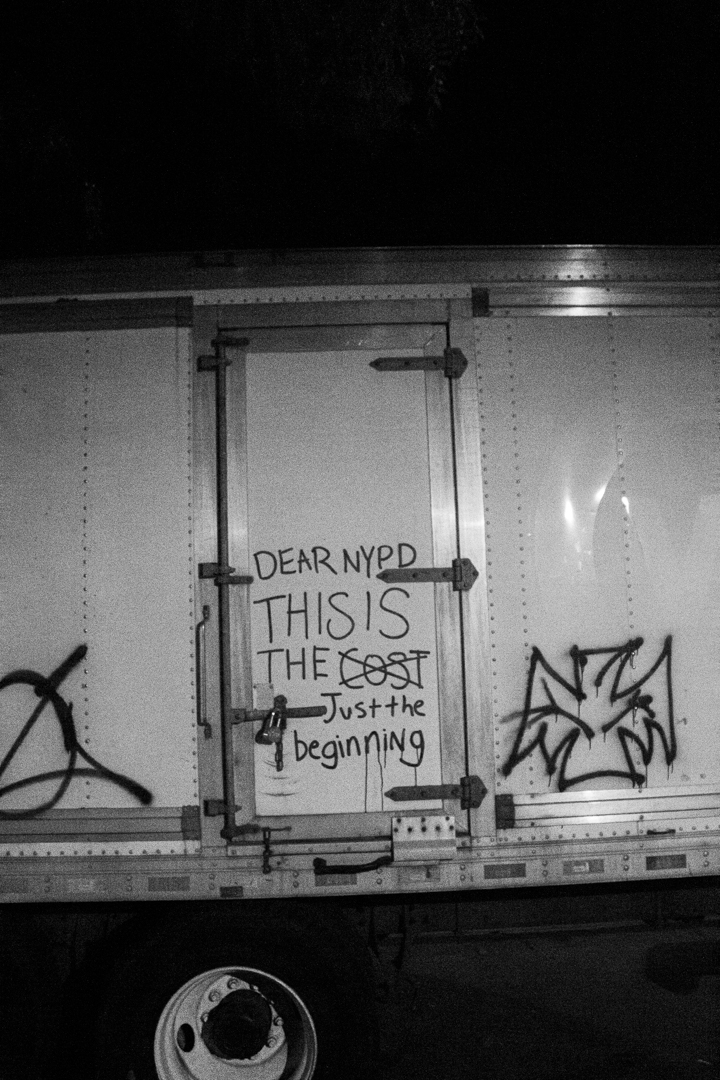 DEAR NYPD
THIS IS
THE COST
Just the
beginning